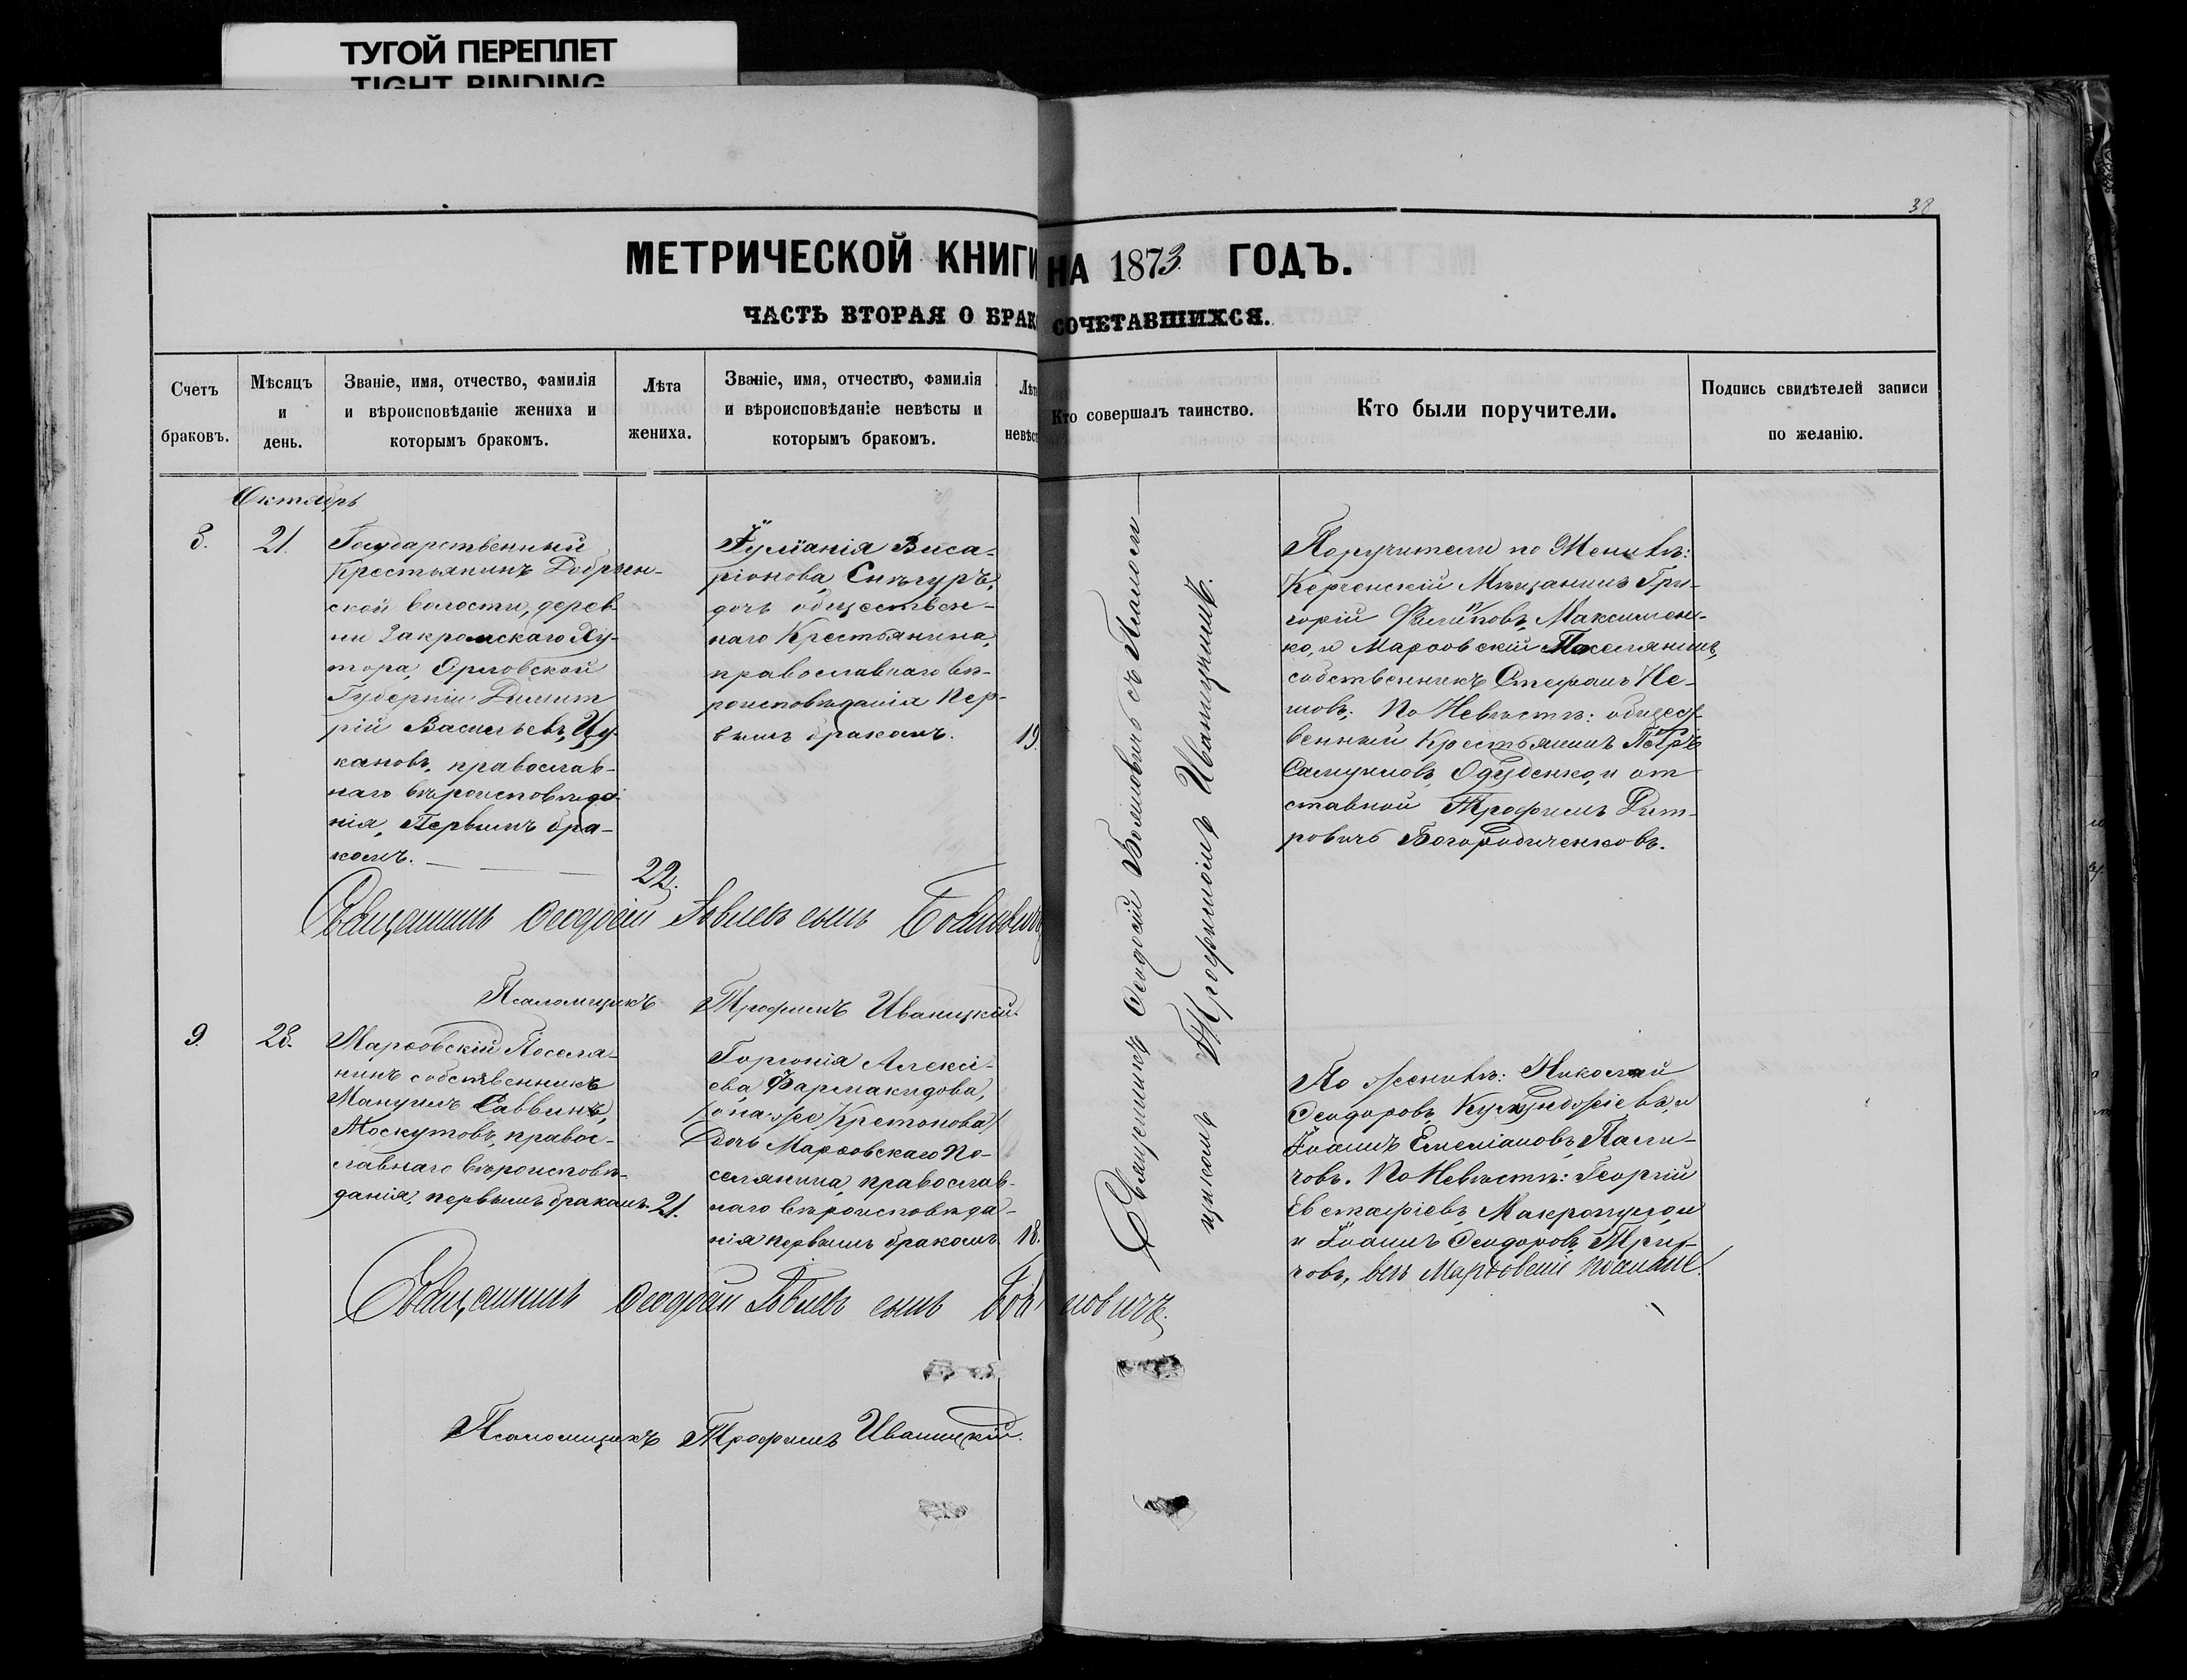 ТУГОЙ ПЕРЕПЛЕТ
TIGHT BINDING
38
МЕТРИЧЕСКОЙ КНИГИ НА 1873 ГОДЪ.
ЧАСТЬ ВТОРАЯ О БРАКОСОЧЕТАВШИХСЯ.
Счетъ браковъ.
Мѣсяцъ и день.
Званіе, имя, отчество, фамилія
и вѣроисповѣданіе жениха и
которымъ бракомъ.
Лѣта
жениха.
Званіе, имя, отчество, фамилія
и вѣроисповѣданіе невѣсты и
которымъ бракомъ.
Лѣт
невѣст
Кто совершалъ таинство.
Кто были поручители.
Подпись свидѣтелей записи
по желанію.
Октябрь
8.
21.
Государственный
Крестьянинъ Добрын-
ской волости, дерев-
ни Закромскаго Ху-
тора, Орловской
Губерніи Димит
рій Васильевъ, Цу-
кановъ, православ-
наго вѣроисповѣда-
нія, Первымъ бра-
комъ.
22.
Іуліанія Виса-
ріонова, Снѣгуръ,
дочь обществен-
наго Крестьянина,
православнаго вѣ-
роисповѣданія Пер-
вымъ бракомъ.
19.
Священникъ Ѳеодосій Іовлевъ сынъ Бойановичъ
Псаломщикъ Трофимъ Иваницкій.
Священникъ Ѳеодосій Бойановичъ съ Псалом-
щикомъ Трофимомъ Иваницкимъ.
Поручители по Женихѣ:
Керченскій Мѣщанинъ Гри-
горій Филиповъ, Максимен-
ко, и Марфовскій Поселянинъ,
собственникъ Стефанъ
По Невѣстѣ: общест-
венный Крестьянинъ Петръ
Самуиловъ, Одуденко, и от
ставной Трофимъ Дмит-
ровичъ Богородиченковъ.
9.
28.
Марфовскій Поселя-
нинъ собственникъ
Мануилъ Саввинъ,
Москутовъ, правос-
славнаго вѣроисповѣ-
данія, первымъ бракомъ.
21.
Горгонія Алексі-
ева, Фармакидова,
/она же Кретонова/
Дочь Марфовскаго По-
селянина, православ-
наго вѣроисповѣда-
нія первымъ бракомъ.
18.
По женихѣ: Николай
Ѳеодоровъ, и
Іоаннъ Емеліановъ,
По Невѣстѣ: Георгій
Евстафіевъ,
и Іоаннъ Ѳеодоровъ,
всѣ Марфовскіе поселяне.
Священникъ Ѳеодосій Іовлевъ сынъ Бойановичъ.
Псаломщикъ Трофимъ Иваницкій.